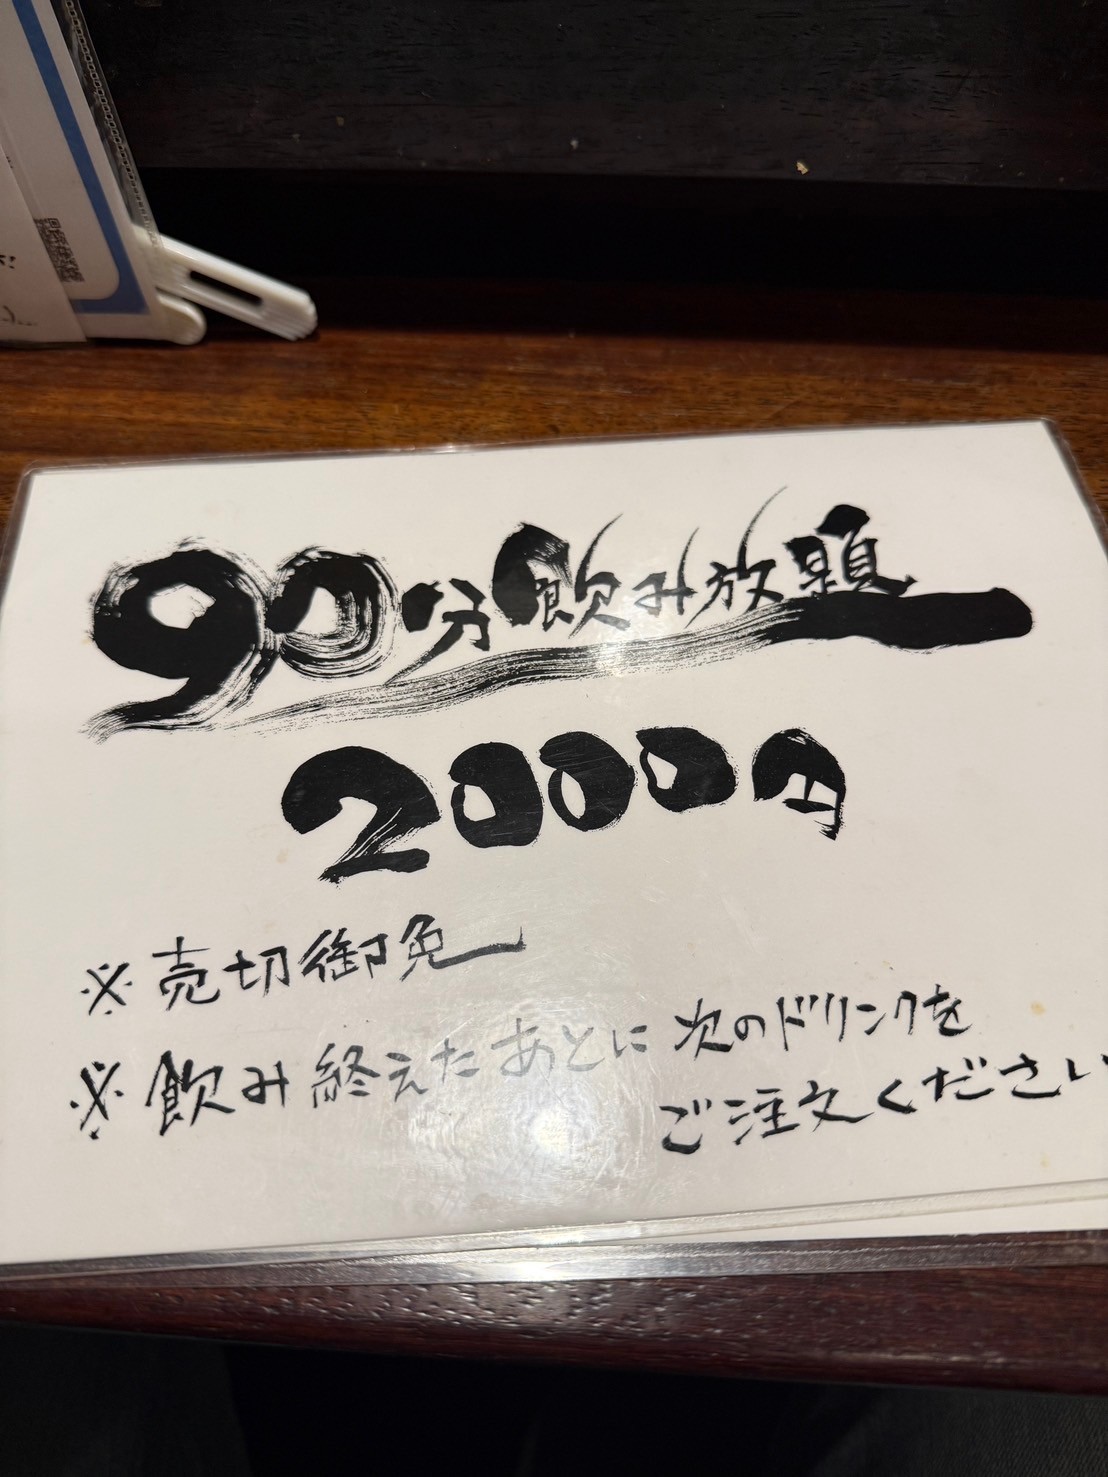 90分飲み放題
2000円
※売切御免
※飲み終えたあとに次のドリンクを
ご注文ください